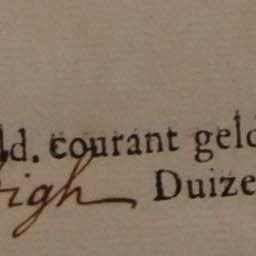 ld. courant geld
tigh Duize